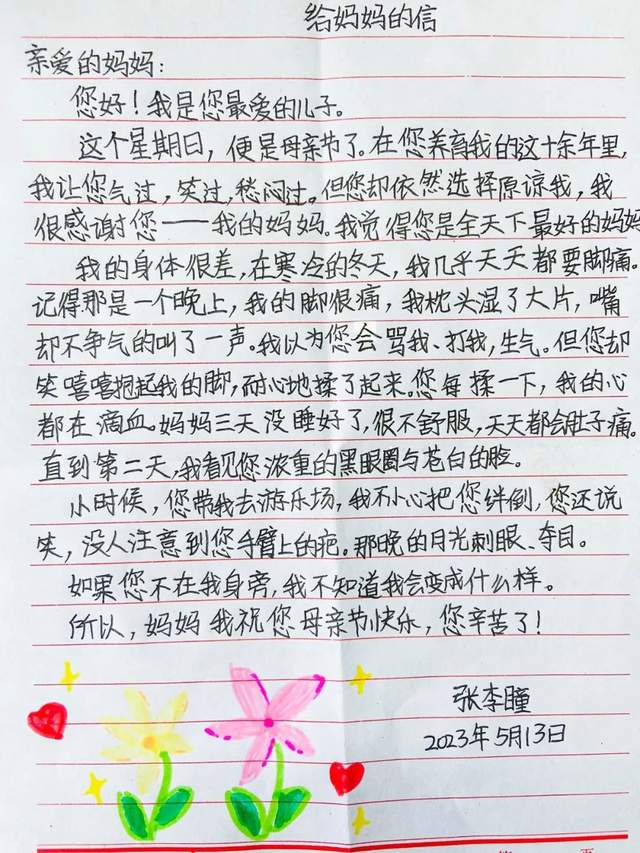 给妈妈的信
亲爱的妈妈:
您好!我是您最爱的儿子。
这个星期日,便是母亲节了。在您养育我的这十余年里,
我让您气过,笑过,愁闷过。但您却依然选择原谅我,我
很感谢您——我的妈妈。我觉得您是全天下最好的妈妈
我的身体很差,在寒冷的冬天,我几乎天天都要脚痛。
记得那是一个晚上,我的脚很痛,我枕头湿了大片,嘴
却不争气的叫了一声。我以为您会骂我、打我,生气。但您却
笑嘻嘻抱起我的脚,耐心地揉了起来。您每揉一下,我的心
都在滴血。妈妈三天没睡好了,很不舒服,天天都会肚子痛。
直到第二天,我看见您浓重的黑眼圈与苍白的脸。
小时候,您带我去游乐场,我不小心把您绊倒,您还说
笑,没人注意到您手臂上的疤。那晚的月光刺眼、夺目。
如果您不在我身旁,我不知道我会变成什么样。
所以,妈妈我祝您母亲节快乐,您辛苦了!
张李瞳
2023年5月13日